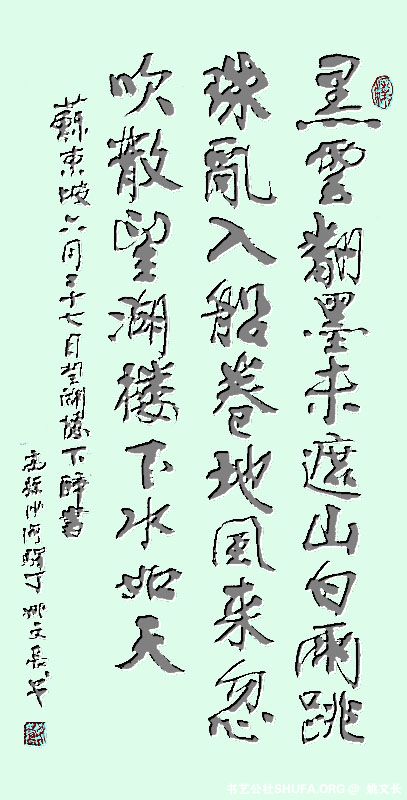 黑雲翻墨未遮山白雨跳
珠亂入船卷地風来忽
吹散望湖樓下水如天
蘇東坡六月二十七日望湖樓下醉書
沙河 姚文長书
书艺公社SHUFA.ORG @ 姚文长